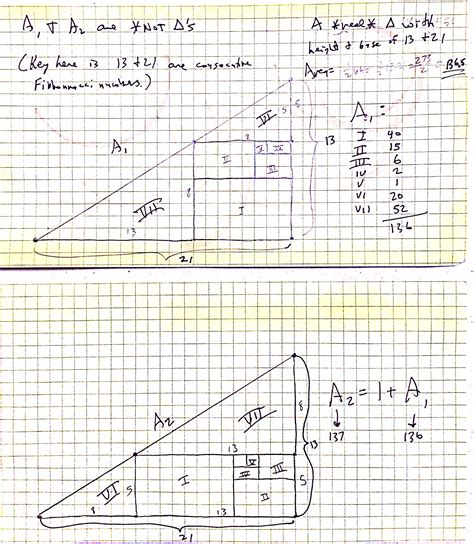 A₁ & A₂ are *NOT Δ's
(Key here is 13 & 21 are consecutive
Fibbonnacci numbers.)
A *real* Δ with
height & base of 13 & 21
Area = 273/2 = 136.5
A₁ =
I 40
II 15
III 6
IV 2
V 1
VI 20
VII 52
136
A₁
VI 5 5
8
II V IV
III
13
8
I
VII
13
21
A₂
VII 8
13
13
V
IV III
VI 5 I II 5
8 13
21
A₂ = 1 + A₁
↓ ↓
137 136